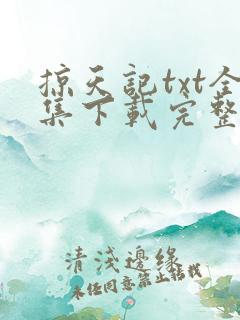 掠天记txt全
集下载完整
清淺邊緣
未经同意禁止转载